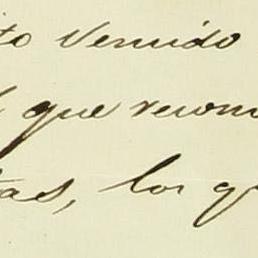 to Venido
que recom
tas, los q